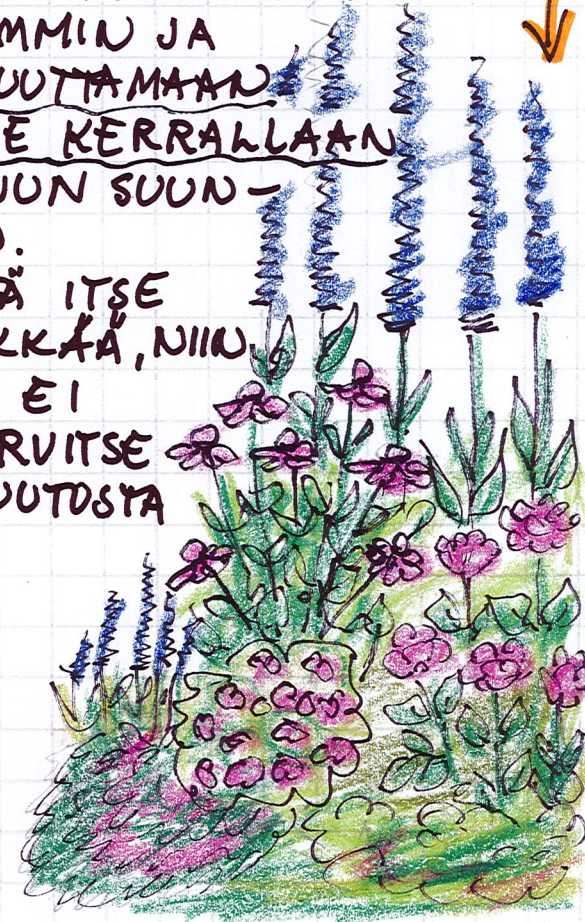 MMIN JA
UUTTAMAAN
E KERRALLAAN
UUN SUUN-
.
Ä ITSE
KKÄÄ, NIIN
EI
RVITSE
UUTOSTA